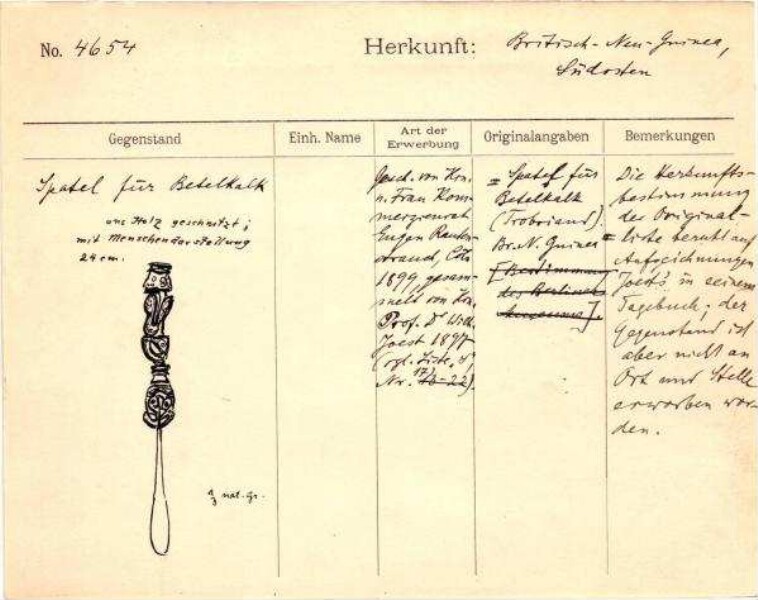 No. 4654
Herkunft: Britisch-Neu-Guinea,
Südosten
Gegenstand
Einh. Name
Art der
Erwerbung
Originalangaben
Bemerkungen
Spatel für Betelkalk
aus Holz geschnitzt;
mit Menschendarstellung
24 cm.
1/3 nat. Gr.
Gesch. von Hrn.
u. Frau Kom-
merzienrat
Eugen Rauten-
strauch, Cöln
1899, gesam-
melt von Hrn.
Prof. Dr Wilh.
Joest 1897
(vgl. Liste
Nr.
= Spatel für
Betelkalk
(Trobriand).
Br. N. Guinea =
[Bestimmung
des Berliner
Museums].
Die Herkunfts-
bestimmung
der Original-
liste beruht auf
Aufzeichnungen
Joest's in seinem
Tagebuch; der
Gegenstand ist
aber nicht an
Ort und Stelle
erworben wor-
den.